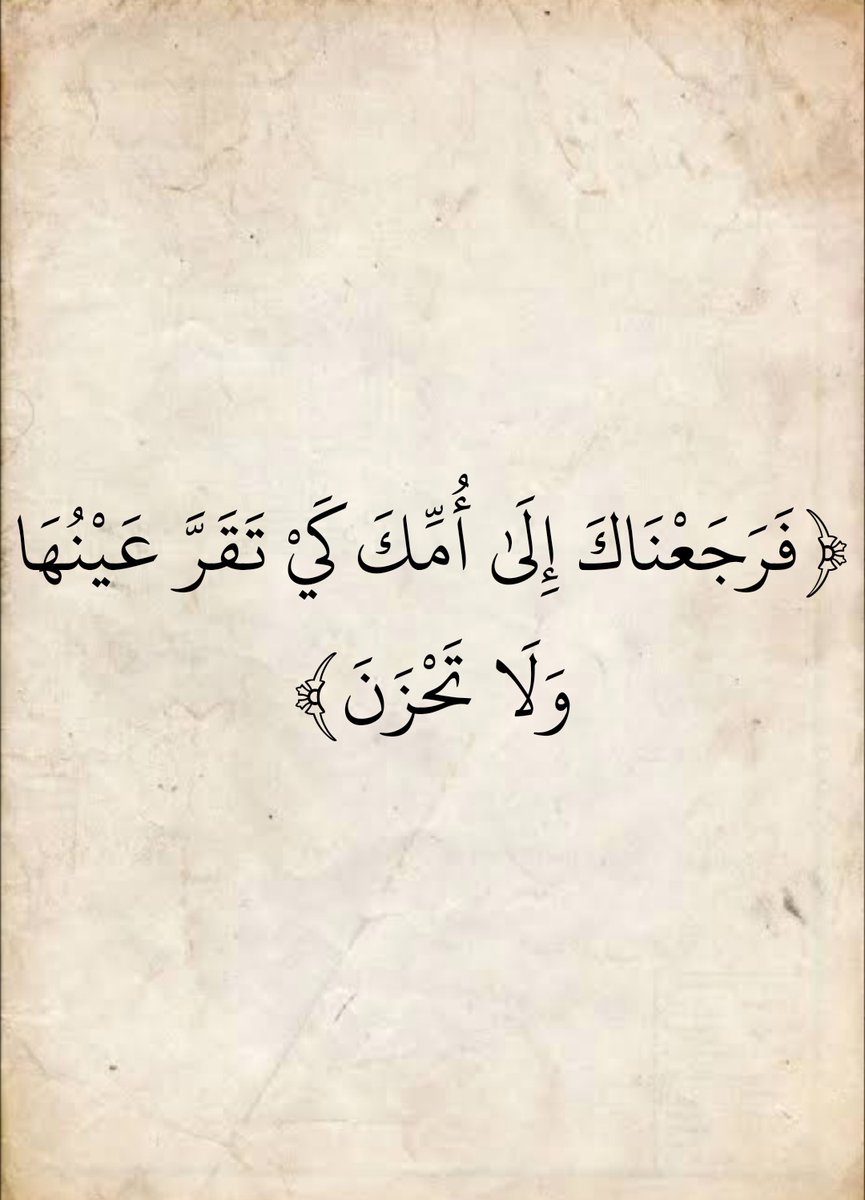 ﴿فَرَجَعْنَاكَ إِلَىٰ أُمِّكَ كَيْ تَقَرَّ عَيْنُهَا
وَلَا تَحْزَنَ﴾